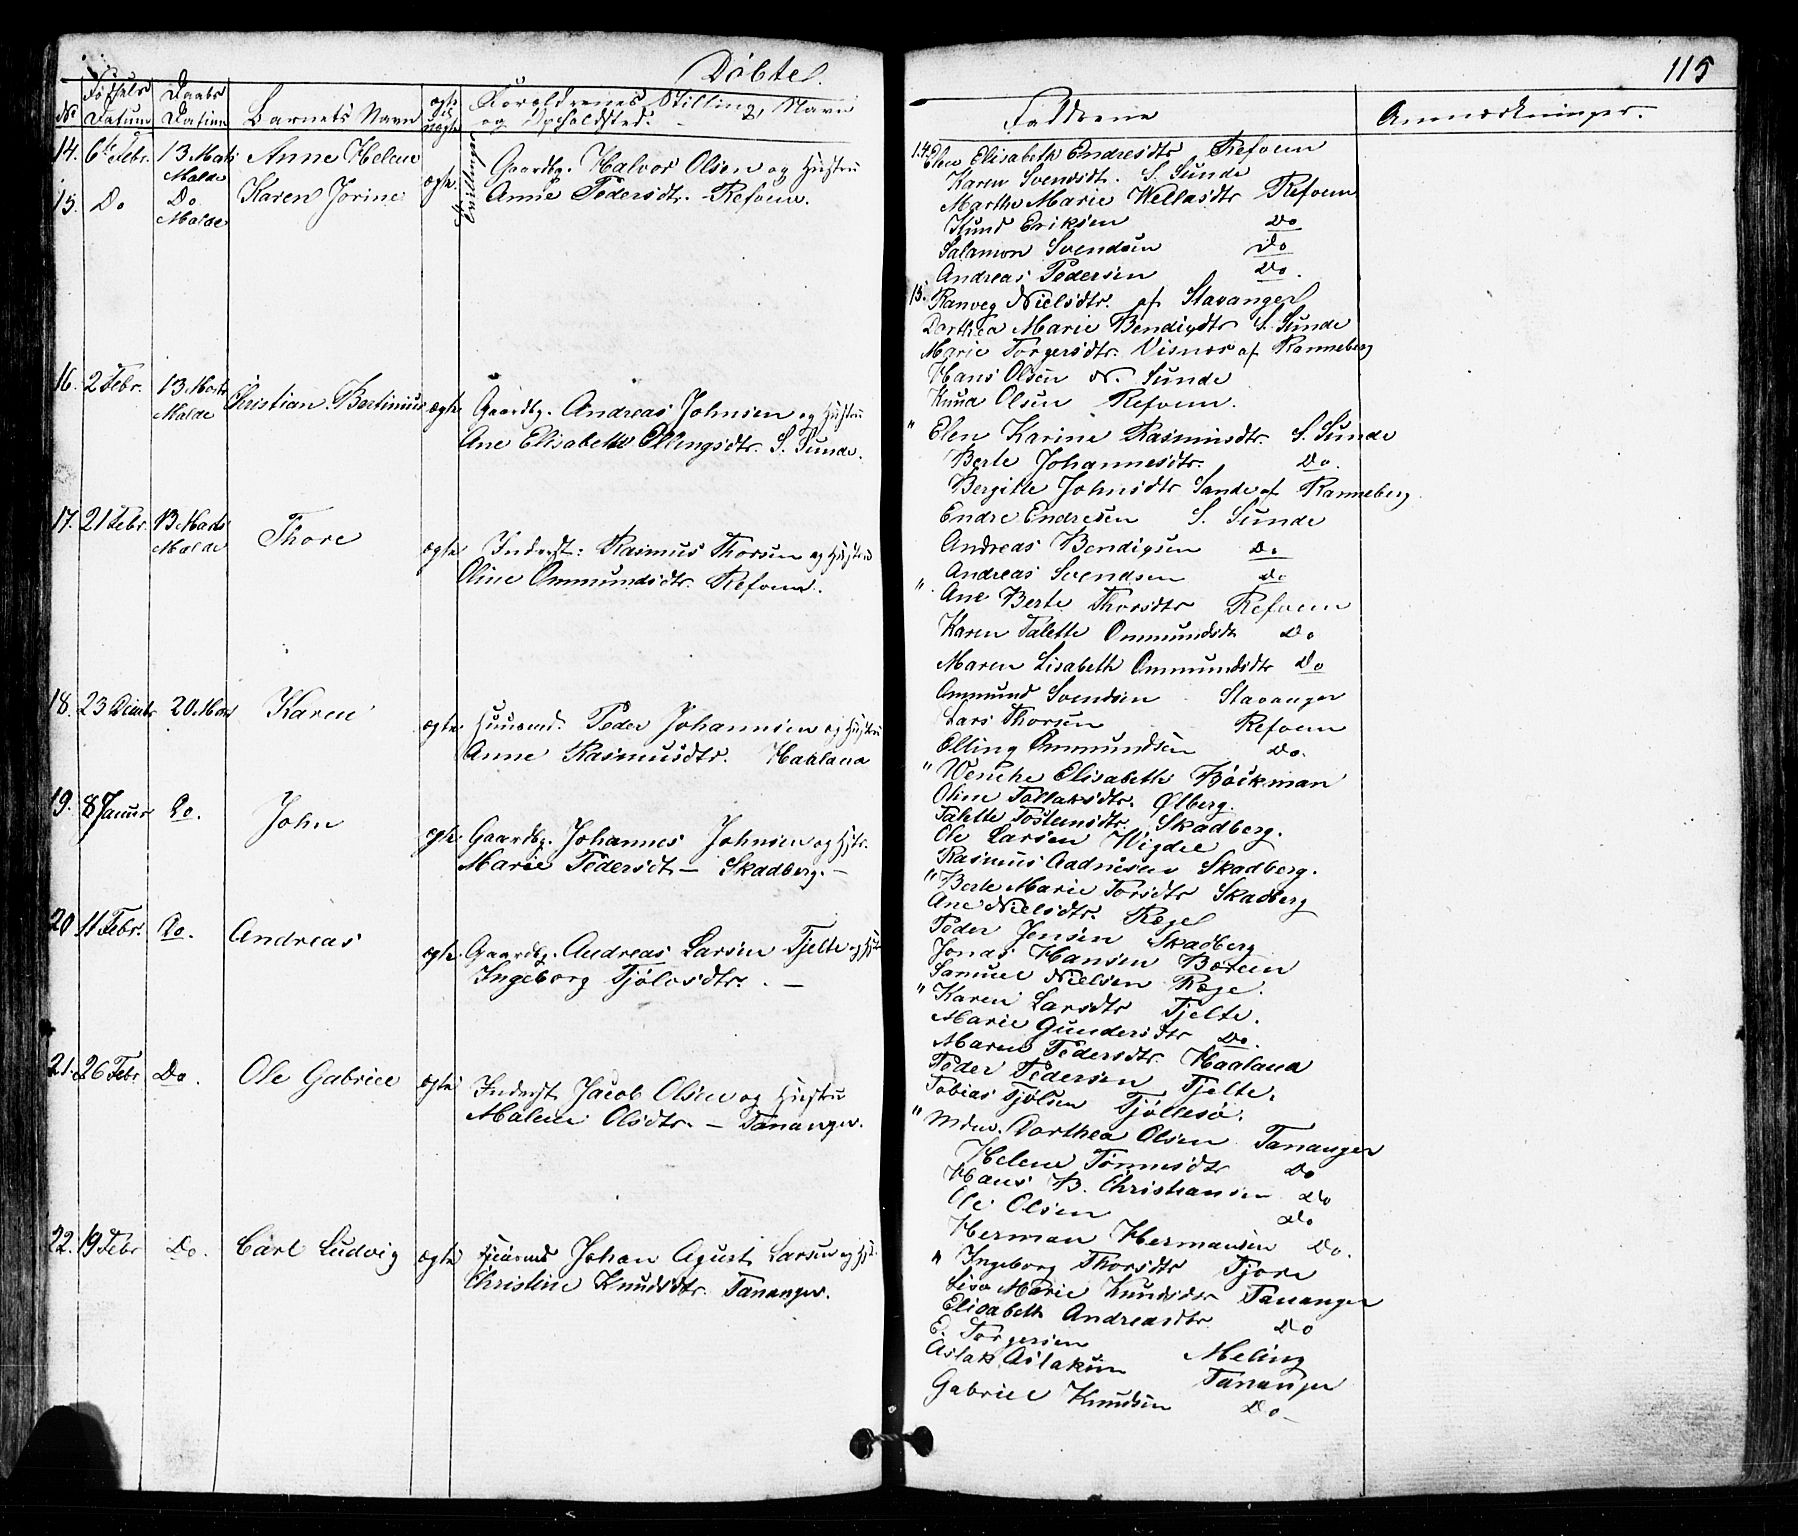 Døbte
115
No
Fødsels Datum
Daabs Datum
Barnets Navn
ægte uægte
Forældrenes Stilling, Navn
og Opholdsted.
Faddrene
Anmærkninger.
14. 6te Febr. 13 Marts Malde Anne Helene ægte. Tvillinger Gaardbg. Halvor Olsen og Hustru
15. Do Do Malde Karen Jorine Anne Pedersdtr. - Refvem.
16. 2 Febr. 13 Marts Malde Christian Bertinius ægte Gaardbg. Andreas Johnsen og Hustru
Ane Elisabeth Ellingsdtr. S. Sunde.
17. 21 Febr. 13 Marts Malde Thore ægte Inderst: Rasmus Thorsen og Hustru
Oline Ommundsdtr. Refvem.
18. 23 Decmbr 20 Mars Karen ægte Huusmd. Peder Johannsen og Hustru
Anne Rasmusdtr. Haaland
19. 8 Januar Do. John ægte. Gaardbg. Johannes Johnsen og Hstr.
Marie Pedersdt. - Skadberg. -
20 11 Febr. Do. Andreas ægte. Gaardbg. Andreas Larsen Tjelte og Hst
Ingeborg Tjølvsdtr. -
21. 26 Febr Do. Ole Gabriel ægte Inderst Jacob Olsen og Hustru
Malene Olsdtr. - Tananger.
22. 19 Febr Do. Carl Ludvig ægte Huusmd Johan Agust Larsen og Hst.
Christine Knudsdtr. Tananger.
14. Elen Elisabeth Endresdtr Refvem
Karen Svendsdt. S. Sunde
Marthe Marie Wellasdtr Refvem
Knud Eriksen Do
Salamon Svendsen Do
Andreas Pedersen Do.
15. Ranveg Nielsdtr. af Stavanger
Dorthea Marie Bendigdtr S. Sunde
Marie Torgersdtr. Visnes af Ranneberg
Hans Olsen N. Sunde
Knud Olsen Refvem.
" Elen Karine Rasmusdtr. S. Sunde
Berte Johannesdtr. Do.
Bergitte Johnsdtr Sande af Ranneberg
Endre Endresen S. Sunde
Andreas Bendigsen Do
Andreas Svendsen Do
" Ane Berte Thorsdtr Refvem
Karen Talette Ommundsdtr Do
Maren Lisabeth Ommundsdtr Do
Ommund Svendsen Stavanger
Lars Thorsen Refvem
Elling Ommundsen Do.
" Wenche Elisabeth Bøckman
Oline Tollaksdtr. Ølberg.
Talette Tostensdtr. Skadberg.
Ole Larsen Wigdel
Rasmus Aadnesen Skadberg.
" Berte Marie Torsdtr Skadberg
Ane Nielsdtr. Røge
Peder Jensen Skadberg
Jonas Hansen Boreen
Samuel Nielsen Røge.
" Karen Larsdtr Tjelte.
Marie Gundersdtr Do.
Maren Pedersdtr. Haaland
Peder Pedersen Tjelte.
Tobias Tjølsen Tjøllesø.
" Mdm. Dorthea Olsen Tananger
Helene Tønnesdtr Do
Hans B. Christiansen Do
Ole Olsen Do
Herman Hermansen Do.
" Ingeborg Thorsdtr Tjore
Lisa Marie Knudsdtr Tananger
Elisabeth Andreasdtr Do
E. Torgersen Meling
Aslak Aslaksen Tananger
Gabriel Knudsen Do